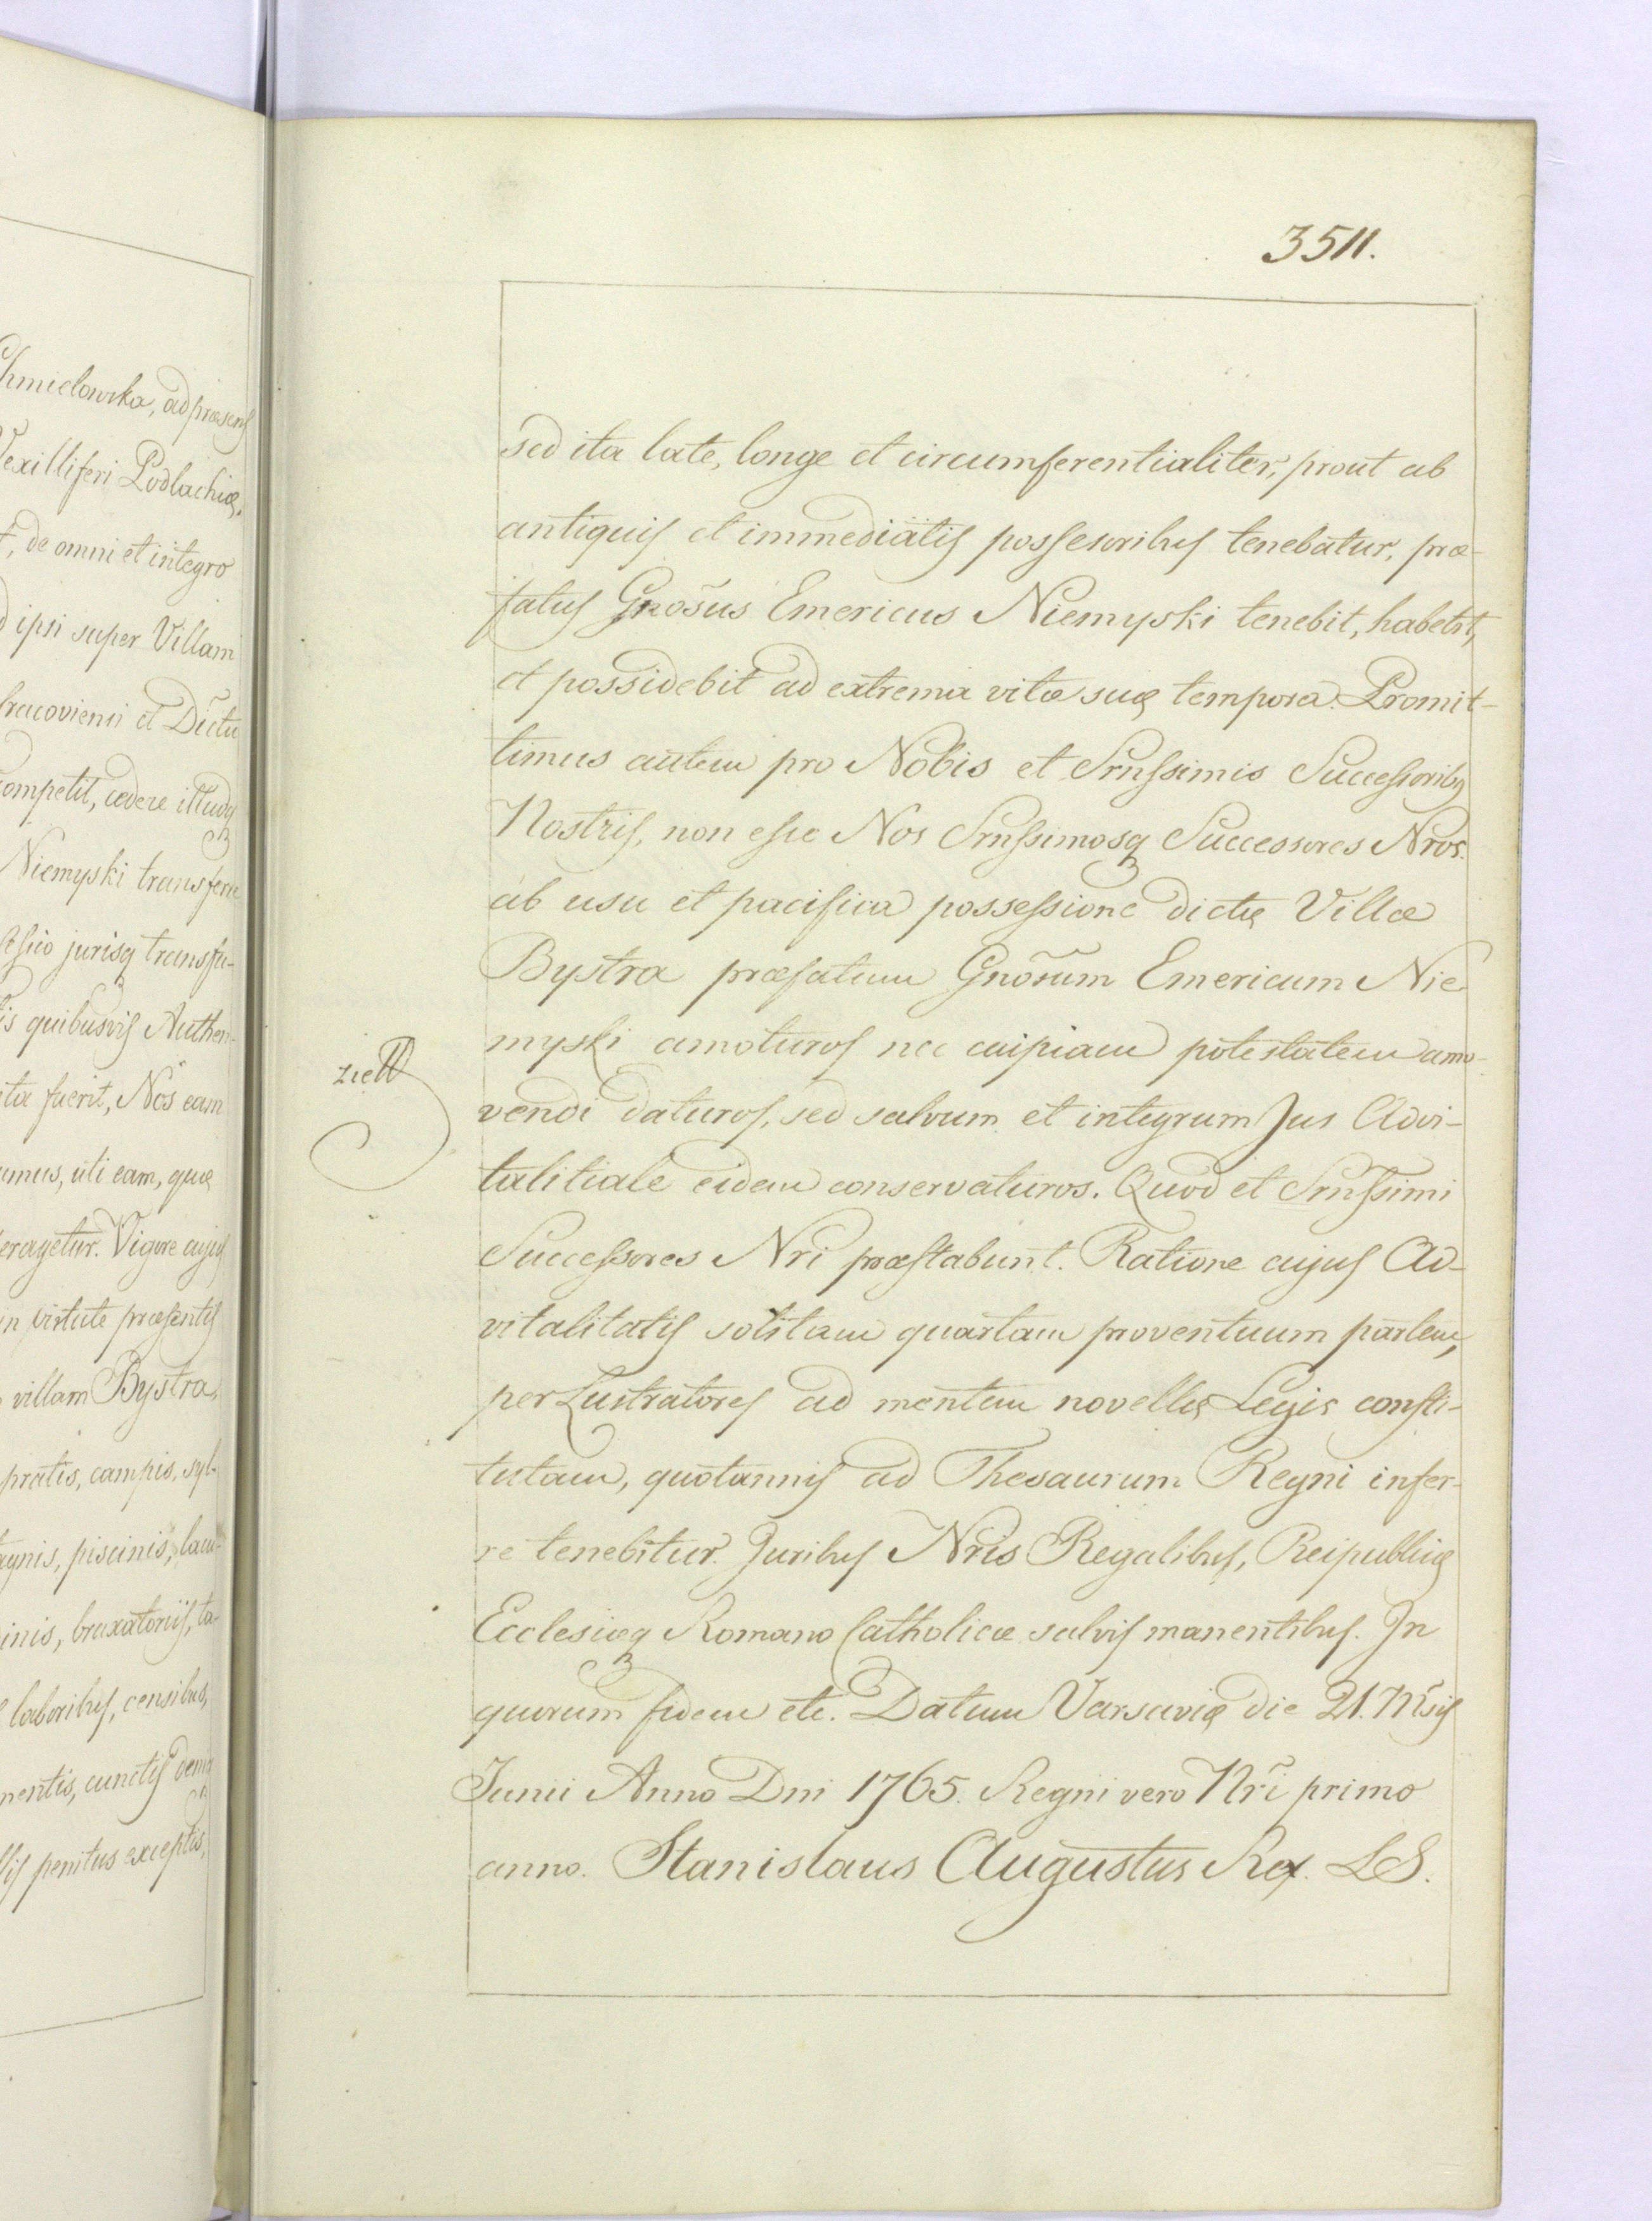 Chmielowska, ad præsens
Vexilliferi Podlachiæ.
t, de omni et integro
d ipsi super Villam
Cracoviensi et Dictu
competit, cedere illudq
Niemyski transferre
jurisq transfu-
is quibusvis Authen-
ita fuerit, Nos eam
umus, uti eam, quæ
eragetur. Vigore cujus
in virtute præsentis
villam Bystra,
pratis, campis, syl-
agnis, piscinis, lacu-
inis, braxatoriis, ta-
laboribus, censibus,
mentis, cunctis demq
lis penitus exceptis,
3511.
sed ita late, longe et circumferentialiter, prout ab
antiquis et immediatis possesoribus tenebatur, præ-
fatus Gnosus Emericus Niemyski tenebit, habebit,
et possidebit ad extrema vitæ suæ tempora. Promit-
timus autem pro Nobis et Srnssimis Successoribq
Nostris, non esse Nos Srnssimosq Successores Nros.
ab usu et pacifica possessione dictæ Villæ
Bystra præfatum Gnosum Emericum Nie
myski amoturos nec cuipiam potestatem amo-
vendi daturos, sed salvum et integrum Jus Advi-
talitiale eidem conservaturos. Quod et Srnssimi
Successores Nri præstabunt. Ratione cujus Ad-
vitalitatis solitam quartam proventuum partem,
per Lustratores ad mentem novellæ Legis consti-
tutam, quotannis ad Thesaurum Regni infer-
re tenebitur. Juribus Nris Regalibus, Reipublicæ
Ecclesiæq Romano Catholicæ salvis manentibus. In
quorum fidem etc. Datum Varsaviæ die 21. Msis
Junii Anno Dni 1765. Regni vero Nri primo
anno. Stanislaus Augustus Rex. LS.